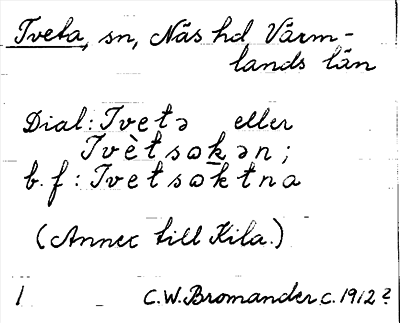 Tveta, sn, Näs hd Värm-
lands län
Dial: Tvetə eller
Tvètsokən;
b. f: Tvetsoktna
(Annex till Kila.)
1 C. W. Bromander c. 1912?